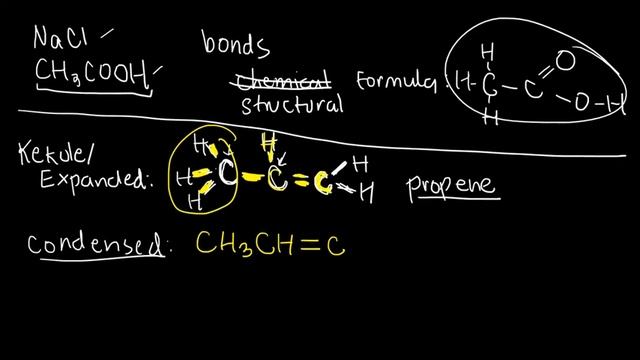 NaCl
CH₃COOH
bonds
chemical
structural
Formula:
H
H-C-C=O
H
O-H
Kekule/
Expanded:
H
H
H
C-C=C
H
H
H
propene
condensed: CH₃CH=C